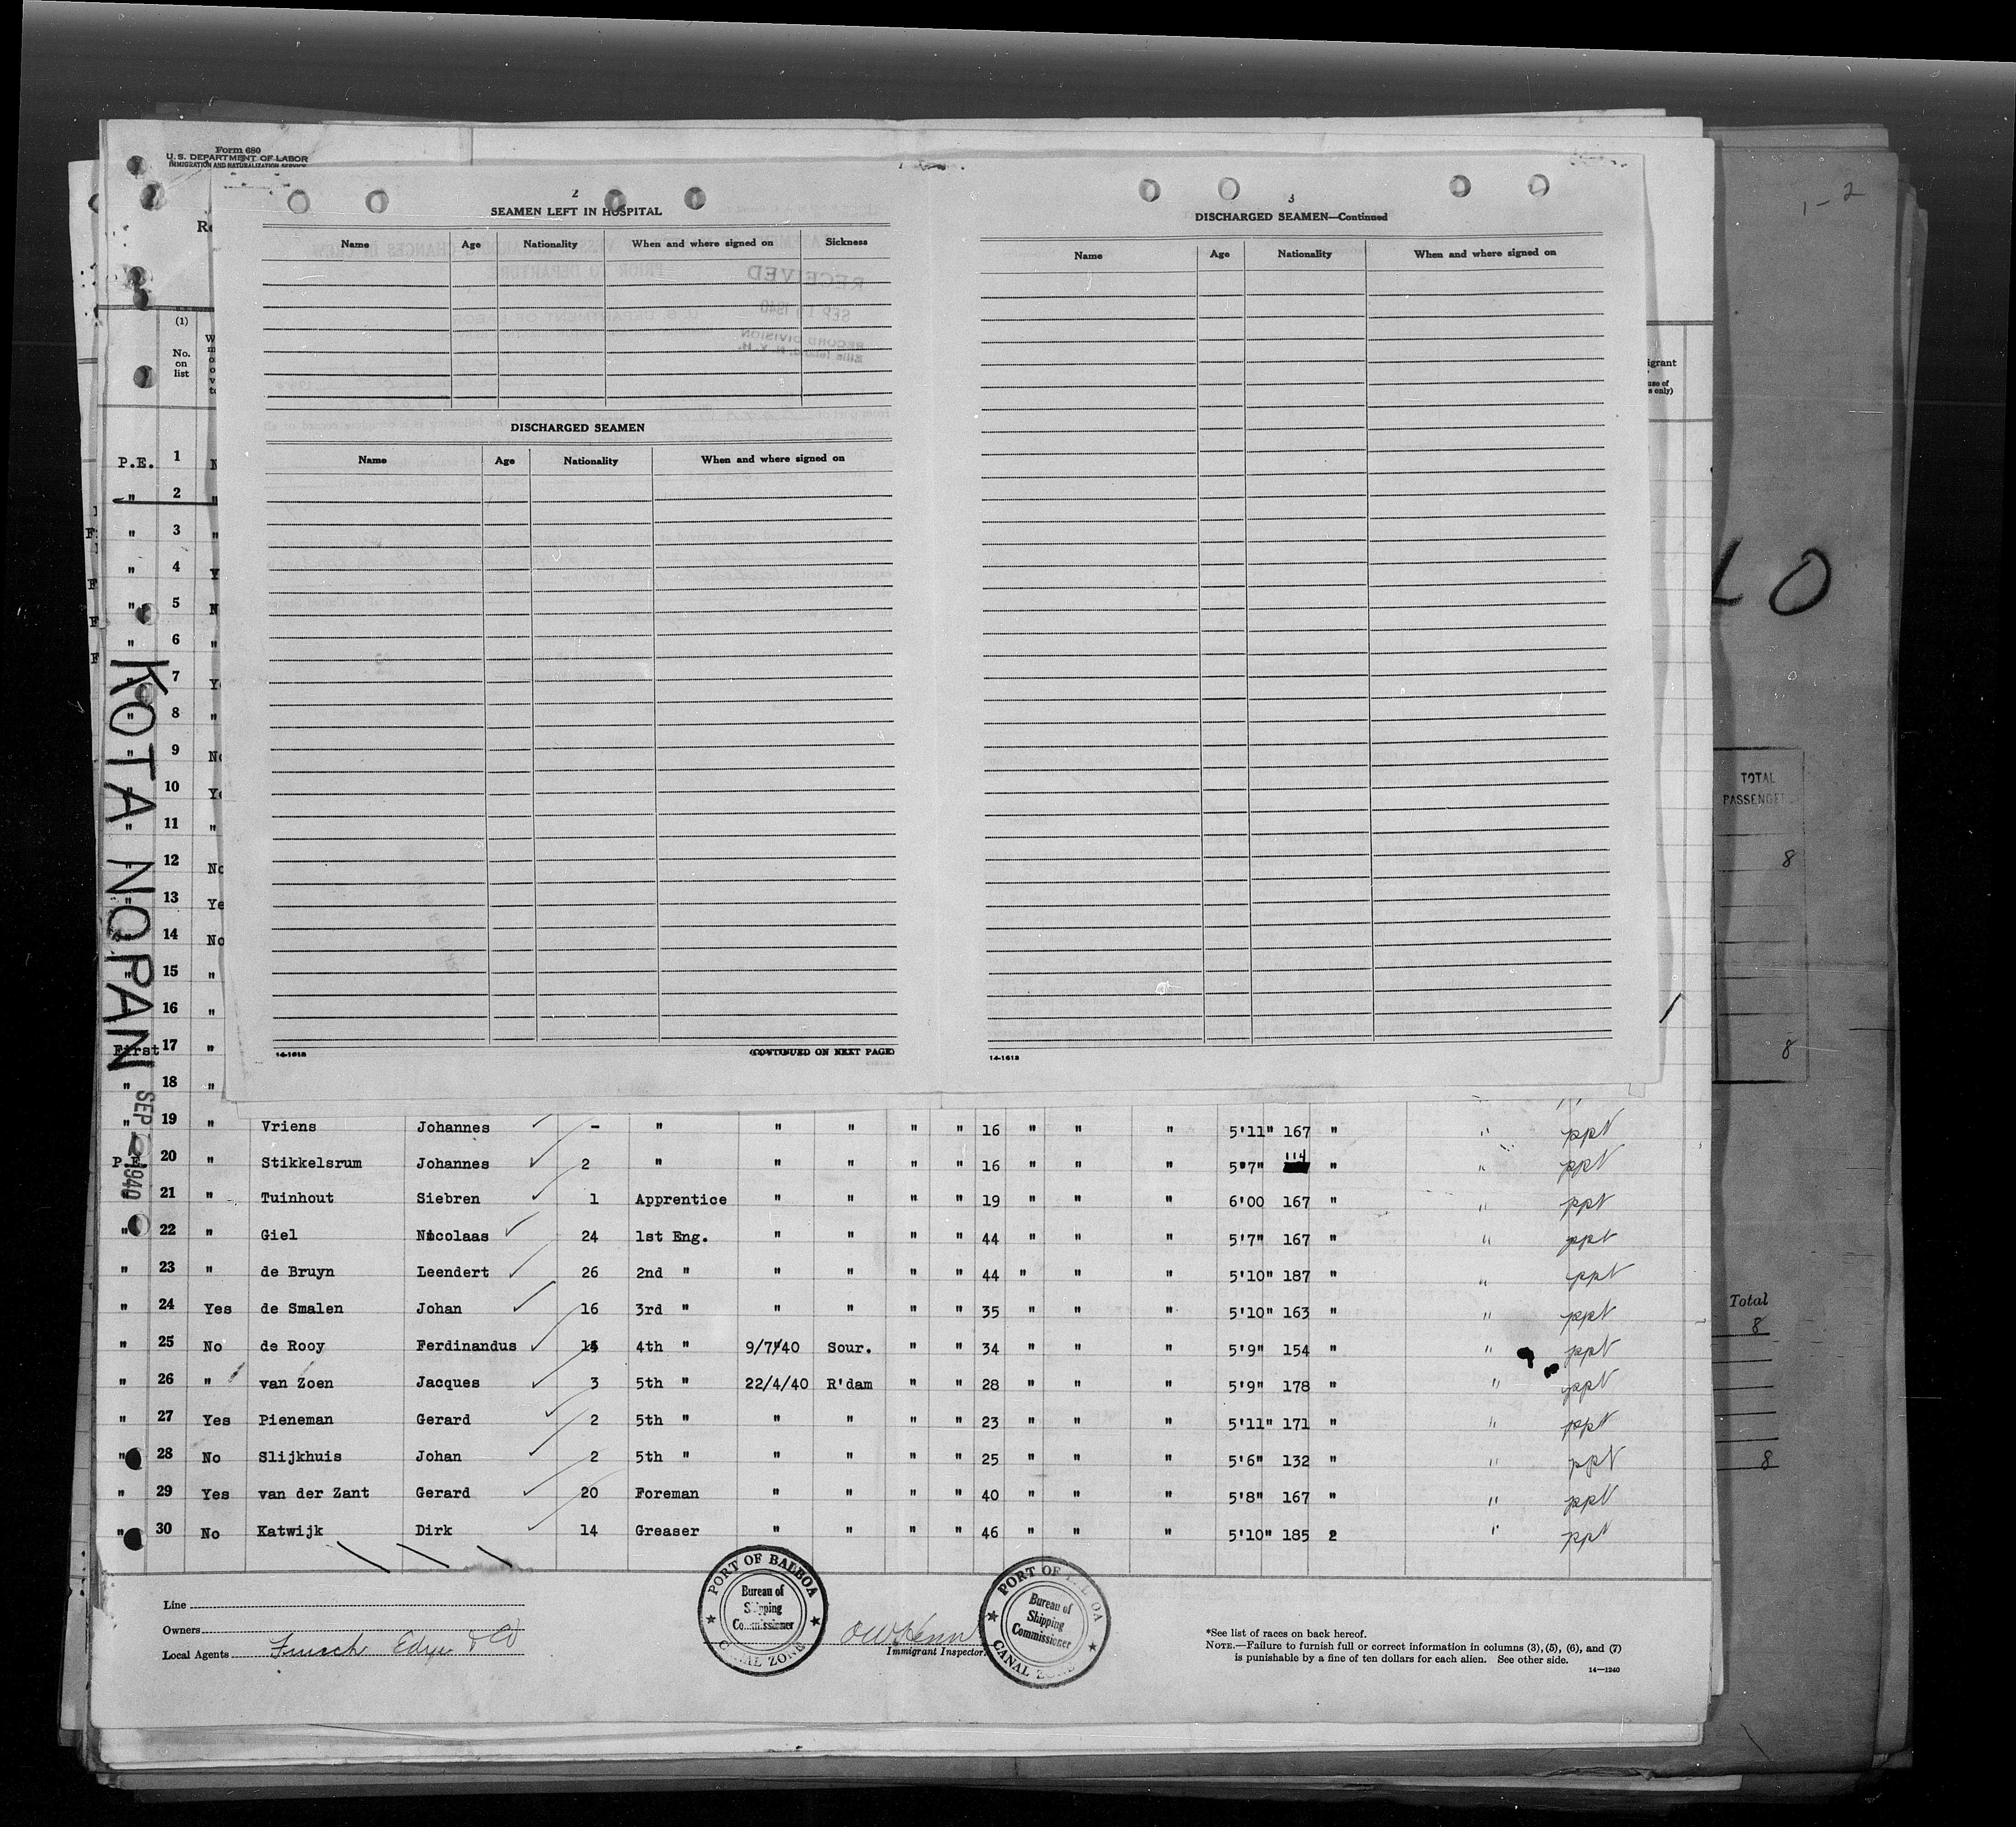 Form 680
U.S. DEPARTMENT OF LABOR
IMMIGRATION AND NATURALIZATION SERVICE
(1)
No.
on
list
2
SEAMEN LEFT IN HOSPITAL
Name Age Nationality When and where signed on Sickness
DISCHARGED SEAMEN
Name Age Nationality When and where signed on
14-1613 (CONTINUED ON NEXT PAGE)
3
DISCHARGED SEAMEN—Continued
Name Age Nationality When and where signed on
14-1613
RECEIVED
SEP 1940
RECORD DIVISION
Ellis Island, N. Y. H.
1-2
LO
TOTAL
8
8
Total
8
8
KOTA NOPAN
SEP 1940
P.E. 1
" 2 "
" 3 "
" 4
" 5
" 6 "
" 7
" 8 "
" 9 No
" 10
" 11 "
" 12 No
" 13 Ye
" 14 No
" 15 "
" 16 "
First 17 "
" 18 "
" 19 " Vriens Johannes - " " " " " 16 " " " 5'11" 167 " " ppt
P.E. 20 " Stikkelsrum Johannes 2 " " " " " 16 " " " 5'7" 114 " " ppt
" 21 " Tuinhout Siebren 1 Apprentice " " " " 19 " " " 6'00 167 " " ppt
" 22 " Giel Nicolaas 24 1st Eng. " " " " 44 " " " 5'7" 167 " " ppt
" 23 " de Bruyn Leendert 26 2nd " " " " " 44 " " " 5'10" 187 " " ppt
" 24 Yes de Smalen Johan 16 3rd " " " " " 35 " " " 5'10" 163 " " ppt
" 25 No de Rooy Ferdinandus 4th " 9/7/40 Sour. " " 34 " " " 5'9" 154 " " ppt
" 26 " van Zoen Jacques 3 5th " 22/4/40 R'dam " " 28 " " " 5'9" 178 " " ppt
" 27 Yes Pieneman Gerard 2 5th " " " " " 23 " " " 5'11" 171 " " ppt
" 28 No Slijkhuis Johan 2 5th " " " " " 25 " " " 5'6" 132 " " ppt
" 29 Yes van der Zant Gerard 20 Foreman " " " " 40 " " " 5'8" 167 " " ppt
" 30 No Katwijk Dirk 14 Greaser " " " " 46 " " " 5'10" 185 2 " ppt
Line
Owners
Local Agents Funch Edye & Co
PORT OF BALBOA
Bureau of
Shipping
Commissioner
CANAL ZONE
Immigrant Inspector.
PORT OF BALBOA
Bureau of
Shipping
Commissioner
CANAL ZONE
*See list of races on back hereof.
NOTE.—Failure to furnish full or correct information in columns (3), (5), (6), and (7)
is punishable by a fine of ten dollars for each alien. See other side.
14—1240